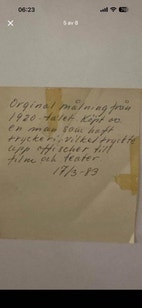 06:23
5 av 9
Orginal målning från
1920-talet. Köpt av
en man som haft
tryckeri, vilket tryckte
upp affischer till
film och teater.
17/3-83